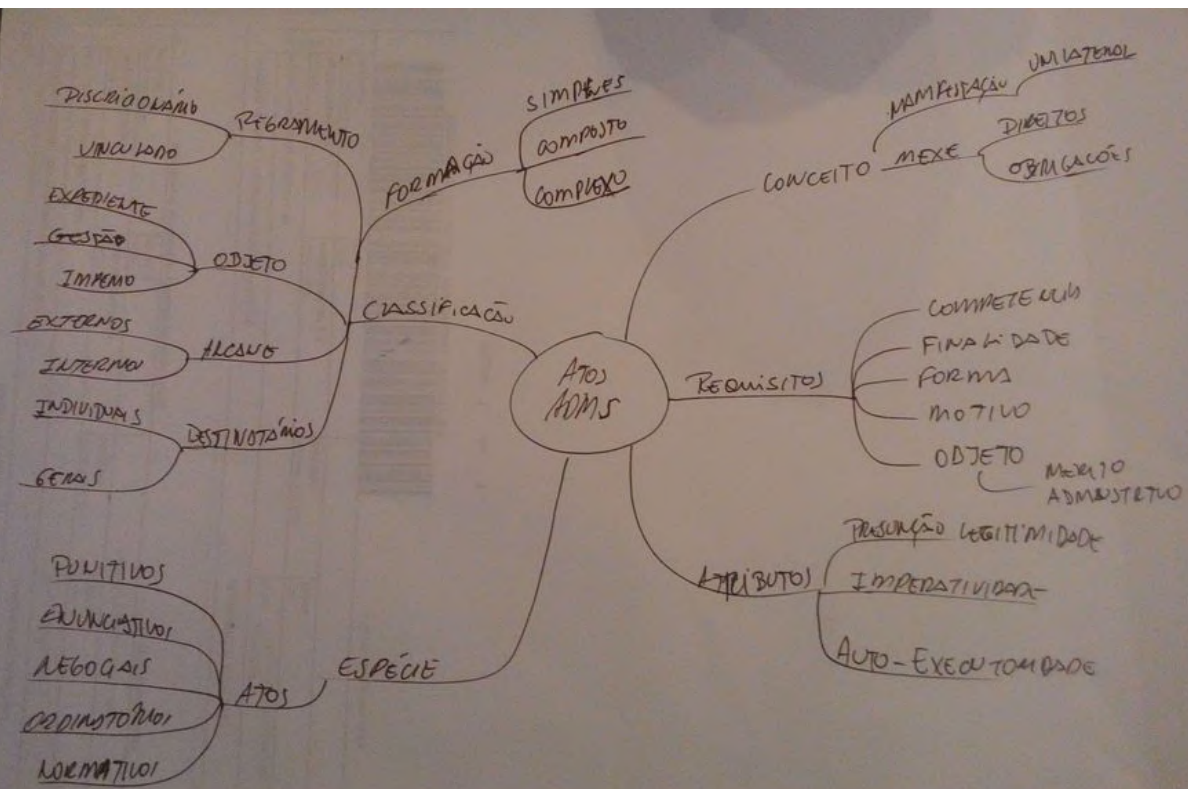 ATOS
ADMS
CONCEITO
MANIFESTAÇÃO
UNILATERAL
MEXE
DIREITOS
OBRIGAÇÕES
REQUISITOS
COMPETENCIA
FINALIDADE
FORMA
MOTIVO
OBJETO
MERITO
ADMINSTRTVO
ATRIBUTOS
PRESUNÇÃO LEGITIMIDADE
IMPERATIVIDADE
AUTO-EXECUTORIDADE
ESPÉCIE
ATOS
PUNITIVOS
ENUNCIATIVOS
NEGOCIAIS
ORDINATÓRIOS
NORMATIVOS
CLASSIFICAÇÃO
FORMAÇÃO
SIMPLES
COMPOSTO
COMPLEXO
REGRAMENTO
DISCRICIONÁRIO
VINCULADO
OBJETO
EXPEDIENTE
GESTÃO
IMPERIO
ALCANCE
EXTERNOS
INTERNOS
DESTINATÁRIOS
INDIVIDUAIS
GERAIS